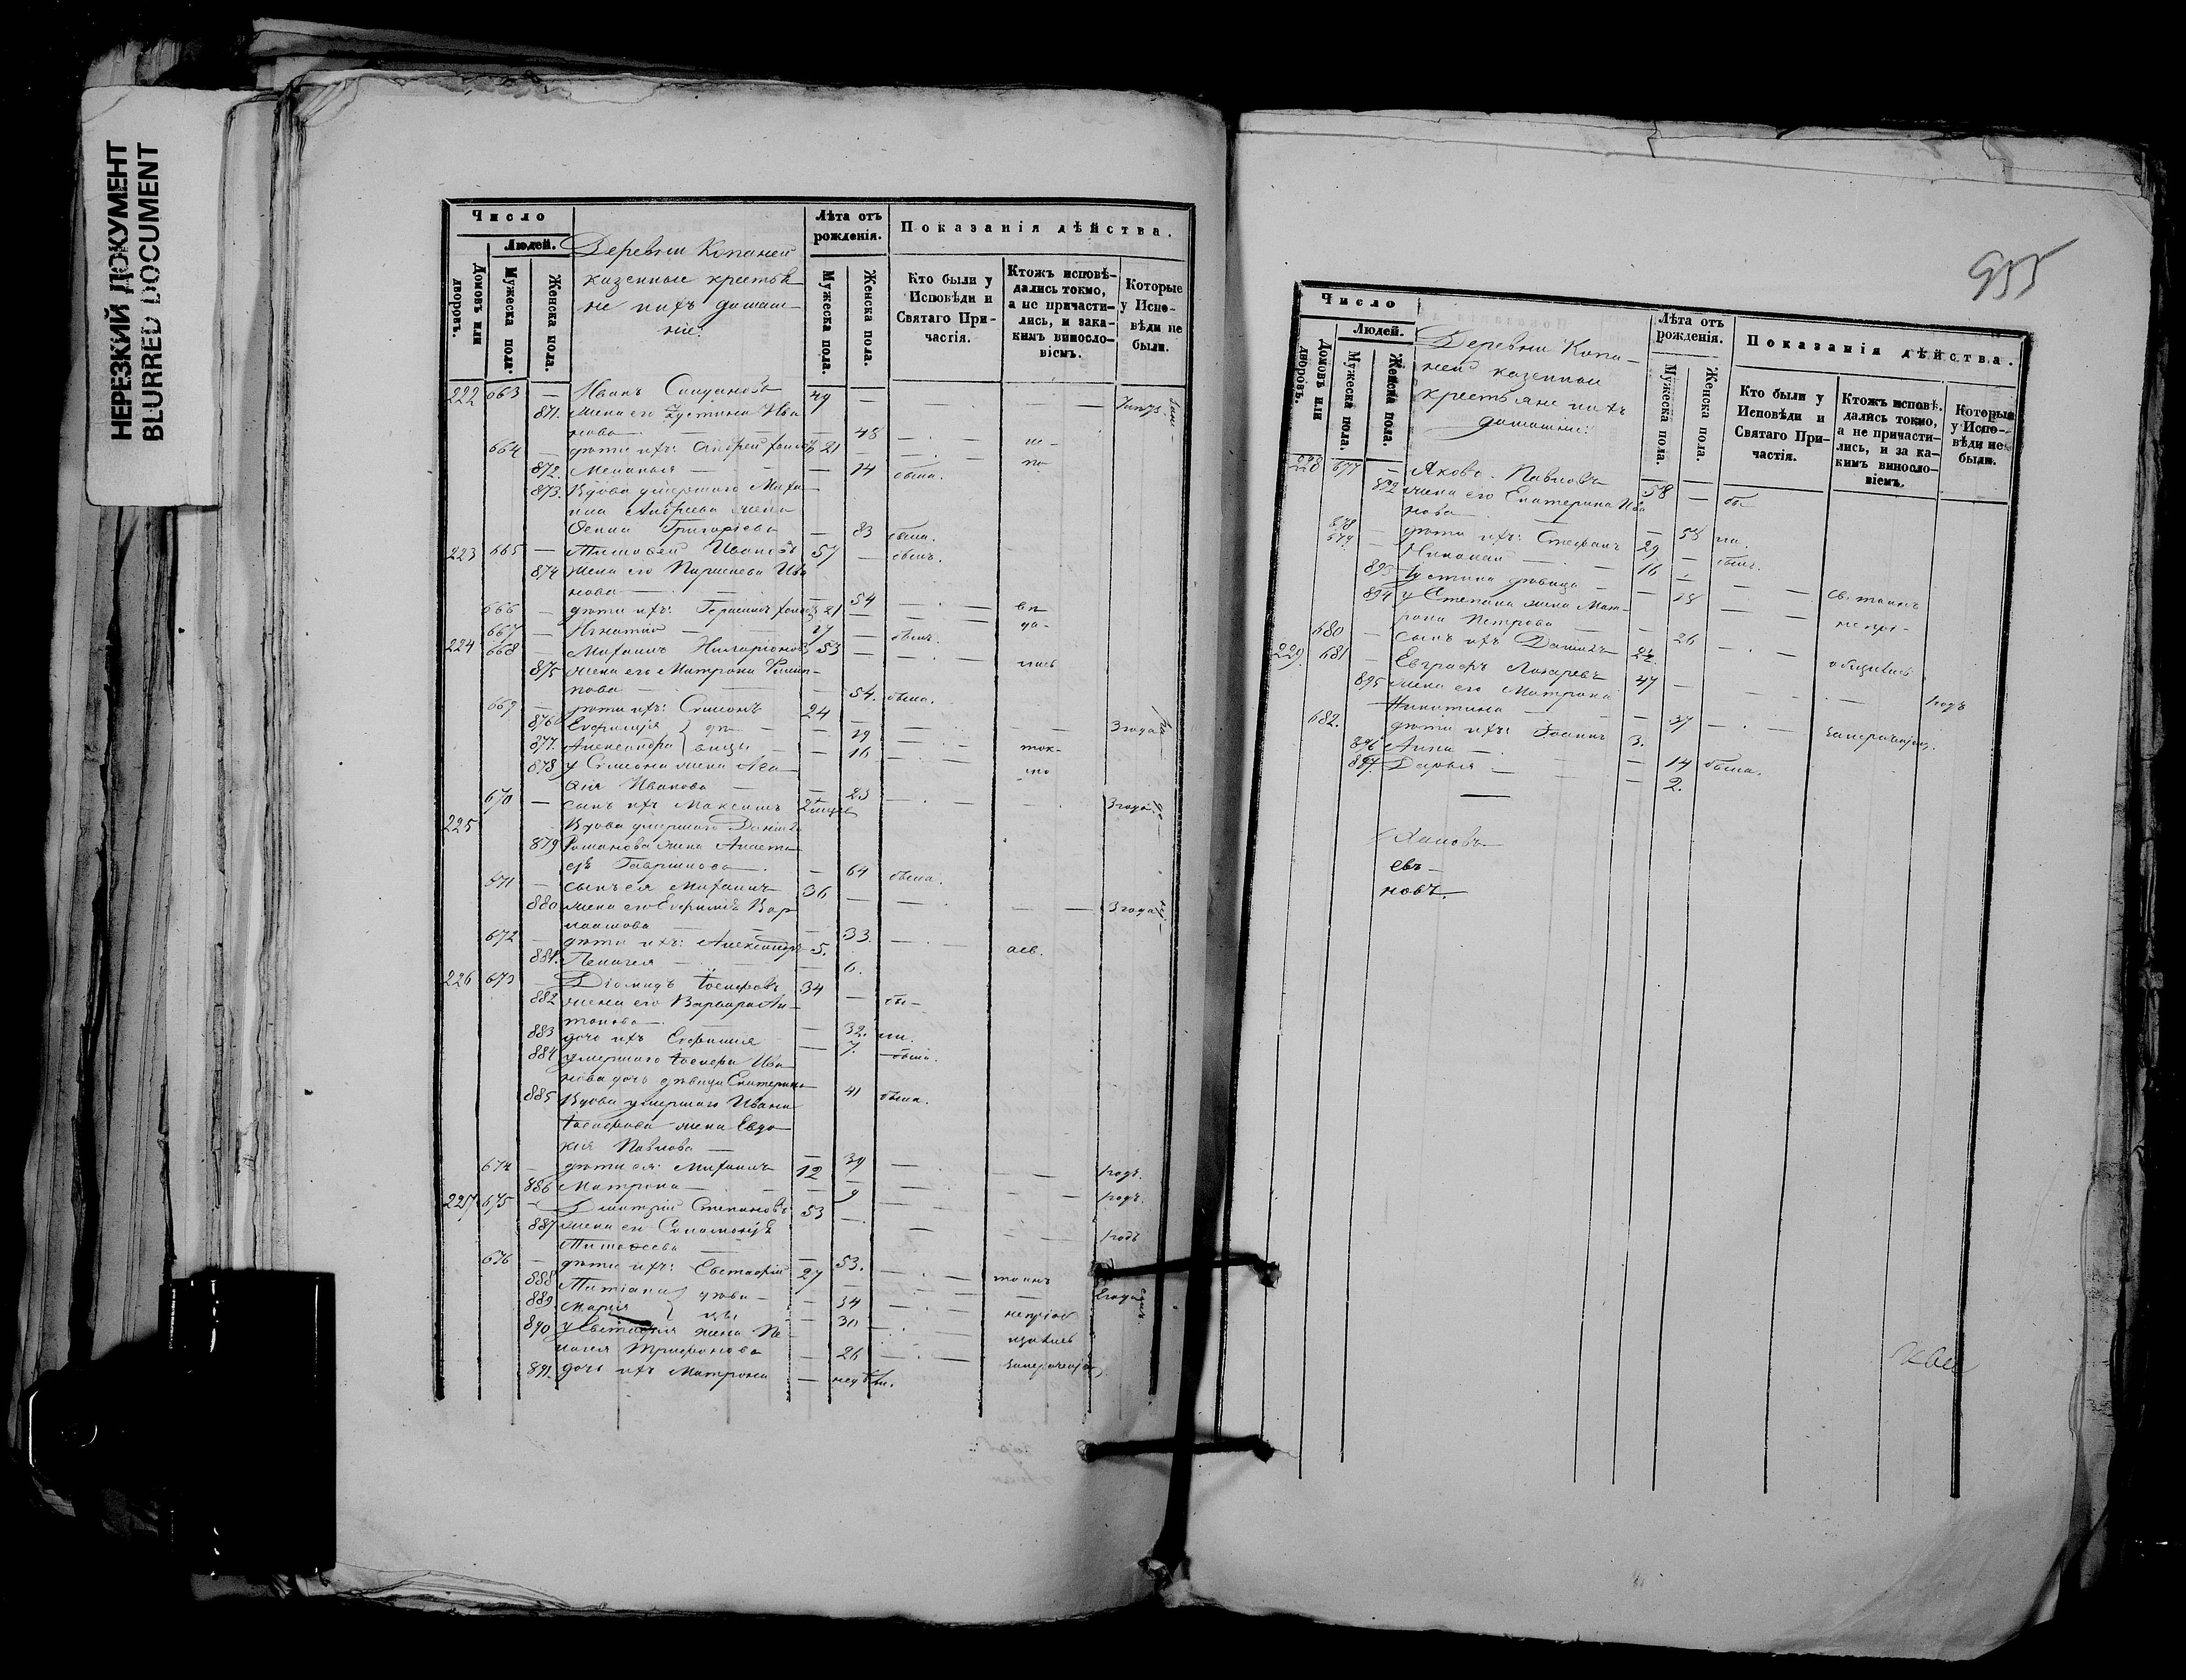 НЕРЕЗКИЙ ДОКУМЕНТ
BLURRED DOCUMENT
Число
Людей.
Домовъ или дворовъ.
Мужеска пола.
Женска пола.
Деревни Копаней
казенные крестья-
не ихъ домаш-
ніе:
Лѣта отъ рожденія.
Мужеска пола.
Женска пола.
Показанія дѣйства.
Кто были у Исповѣди и Святаго Причастія.
Ктожъ исповѣ-
дались токмо,
а не причасти-
лись, и зака-
кимъ винословіемъ.
Которые
у Испо-
вѣди не
были.
222 663 — Иванъ 49 —
871. жена его Устина Ива
нова — 48
664 — дѣти ихъ: Андрей 21 —
872. Меланья — 14 была.
873. Вдова умершаго Михаи
ла Андреева жена
Ксенія Григорьева — 83 была.
223 665 — Тимофей Ивановъ 57 — былъ.
874 жена его Параскева Ива
нова — 54
666 — дѣти ихъ: Герасимъ 21
667 — Игнатій 17 — былъ.
224 668 — Михаилъ Иларіоновъ 53
875 жена его Матрона Филип-
пова — 54. была.
669 — дѣти ихъ: Симеонъ 24 —
876 Евфимія } дѣ- — 19 3 года
877. Александра } вицы — 16 ток-
878 у Симеона жена Ага мо
фія Иванова — 23
670 — сынъ ихъ Максимъ 3 года
225 Вдова умершаго Даніила
879 Романова жена Анаста
сія Гаврилова — 64 была.
671 — сынъ ея Михаилъ 36
880 жена его Евфимія Вар 3 года
лаамова — 33.
672 — дѣти ихъ: Александръ 5.
881. Пелагея — 6.
226 673 — Діомидъ Іосифовъ 34 —
882 жена его Варвара Ан- бы-
тонова — 32. ли.
883 дочь ихъ Евфимія — 7.
884 умершаго Іосифа Ива- была.
нова дочь дѣвица Екатерина 41 была.
885 Вдова умершаго Ивана
Іосифова жена Евдо-
кія Павлова — 39
674 — дѣти ея: Михаилъ 12 1 годъ.
886 Матрона — 9 1 годъ.
227 675 — Дмитрій Степановъ 53 —
887 жена его Соломонія 1 годъ
Тимофеева — 53.
676 — дѣти ихъ: Евстафій 27 таинъ
888 Татіана } дѣви- — 34 2 года
889 Марія } цы — 30 непріоб
890 у Евстафія жена Пе- щались
лагея Трифонова — 26
891. дочь ихъ Матрона — недѣли.
955
Число
Людей.
Домовъ или дворовъ.
Мужеска пола.
Женска пола.
Деревни Копа-
ней казенныи
крестьяне ихъ
домашніе:
Лѣта отъ рожденія.
Мужеска пола.
Женска пола.
Показанія дѣйства.
Кто были у Исповѣди и Святаго Причастія.
Ктожъ исповѣ-
дались токмо,
а не причасти-
лись, и за ка-
кимъ винословіемъ.
Которые
у Испо-
вѣди не
были.
228 677 — Яковъ Павловъ 58 — бы-
892 жена его Екатерина Ива
нова — 58 ли.
678 дѣти ихъ: Стефанъ 29 —
679 — Николай 16 — былъ.
893 Устина дѣвица — 18 св. таинъ
894 у Степана жена Мат- непрі-
рона Петрова — 26
680 — сынъ ихъ Даніилъ общались
229 681 — Евграфъ Лазаревъ 47 —
895 жена его Матрона 1 годъ
Никитина — 37
682. дѣти ихъ: Іоаннъ 3.
896 Анна — 14 была.
897. Дарья — 2.
евъ —
новъ.